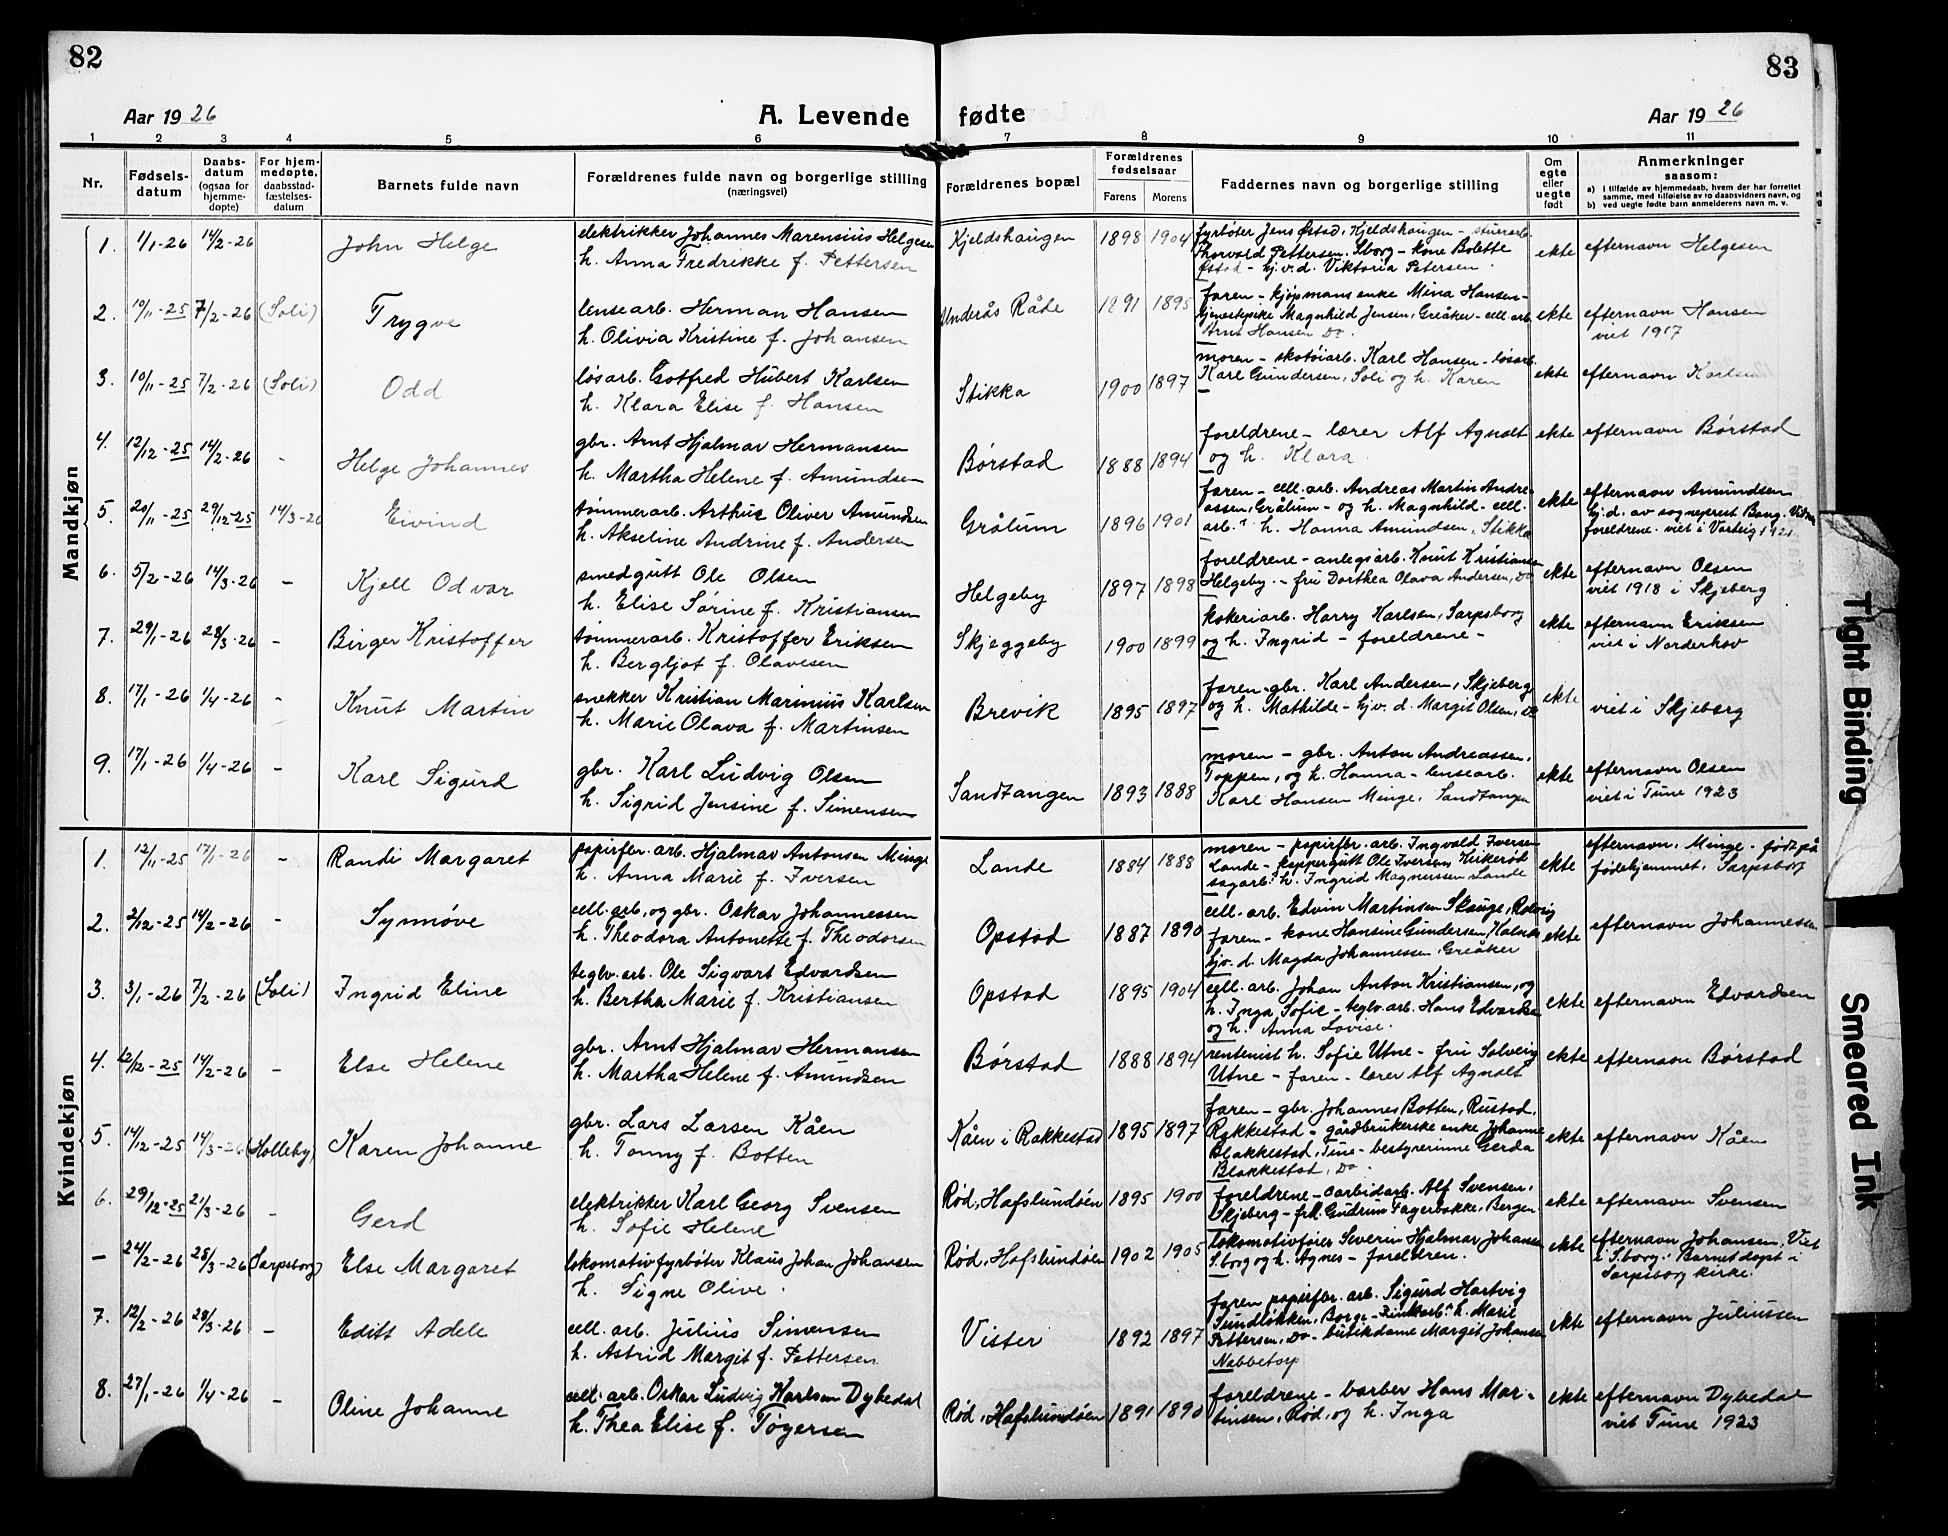 82
83
Aar 1926
A. Levende fødte
Aar 1926
1 2 3 4 5 6 7 8 9 10 11
Nr.
Fødsels-datum
Daabs-datum (ogsaa for hjemme-døpte)
For hjem-medøpte, daabsstad-fæstelses-datum
Barnets fulde navn
Forældrenes fulde navn og borgerlige stilling (næringsvei)
Forældrenes bopæl
Forældrenes fødselsaar
Farens
Morens
Faddernes navn og borgerlige stilling
Om egte eller uegte født
Anmerkninger saasom:
a) i tilfælde av hjemmedaab, hvem der har forrettet samme, med tilføielse av to daabsvidners navn, og
b) ved uegte fødte barn anmelderens navn m. v.
Mandkjøn
1. 1/1-26 14/2-26 John Helge
elektrikker Johannes Marensius Helgesen
h. Anna Fredrikke f. Pettersen
Kjeldshaugen 1898 1904
fyrbøter Jens Østad, Kjeldshaugen -
Thorvald Pettersen, Sborg - kone Bolette
Østad - hj.v.d. Viktoria Petersen.
ekte efternavn Helgesen
2. 10/11-25 7/2-26 (Soli) Trygve
lensearb. Herman Hansen
h. Olivia Kristine f. Johansen
Underås Råde 1891 1895
faren - kjøpmans enke Mina Hansen -
tjenestepike Magnhild Jensen, Greåker - cell. arb.
Arnt Hansen Do.
ekte efternavn Hansen
viet 1917
3. 10/11-25 7/2-26 (Soli) Odd
løsarb. Gotfred Hubert Karlsen
h. Klara Elise f. Hansen
Stikka 1900 1897
moren - skotøiarb. Karl Hansen - løsarb.
Karl Gundersen, Soli og h. Karen
ekte efternavn Karlsen
4. 12/12-25 14/2-26 - Helge Johannes
gbr. Arnt Hjalmar Hermansen
h. Martha Helene f. Amundsen
Børstad 1888 1894
foreldrene - lærer Alf Agnalt
og h. Klara.
ekte efternavn Børstad
5. 20/11-25 29/12-25 14/3-26 Eivind
tømmerarb. Arthur Oliver Amundsen
h. Akseline Andrine f. Andersen
Grålum 1896 1901
faren - cell. arb. Andreas Martin Andre-
assen, Grålum - og h. Magnhild - cell.
arb. h. Hanna Amundsen, Stikka
ekte efternavn Amundsen
hj.d. av sogneprest Bang. Vidner
foreldrene. viet i Varteig 1921
6. 5/2-26 14/3-26 - Kjell Odvar
smedgutt Ole Olsen
h. Elise Sørine f. Kristiansen
Helgeby 1897 1898
foreldrene - anlegsarb. Knut Kristiansen
Helgeby. - fru Dorthea Olava Andersen, Do
ekte efternavn Olsen
viet 1918 i Skjeberg
7. 29/1-26 28/3-26 - Birger Kristoffer
tømmerarb. Kristoffer Eriksen
h. Bergljot f. Olavesen
Skjeggeby 1900 1899
kokeriarb. Harry Karlsen, Sarpsborg
og h. Ingrid - foreldrene -
ekte efternavn Eriksen
viet i Norderhov
8. 17/1-26 1/4-26 - Knut Martin
snekker Kristian Marinius Karlsen
h. Marie Olava f. Martinsen
Brevik 1895 1897
faren - gbr. Karl Andersen, Skjeberg
og h. Mathilde - hj.v.d. Margit Olsen, Do
ekte viet i Skjeberg
9. 17/1-26 1/4-26 - Karl Sigurd
gbr. Karl Ludvig Olsen
h. Sigrid Jensine f. Simensen
Sandtangen 1893 1888
moren - gbr. Anton Andreassen,
Toppen, og h. Hanna - lensearb.
Karl Hansen Minge, Sandtangen
ekte efternavn Olsen
viet i Tune 1923
Kvindekjøn
1. 12/11-25 17/1-26 - Randi Margaret
papirfbr. arb. Hjalmar Antonsen Minge
h. Anna Marie f. Iversen
Lande 1884 1888
moren - papirfbr. arb. Ingvald Iversen
Lande - Ole Iversen, Kirkerød
sagarb. h. Ingrid Magnussen Lande
ekte efternavn. Minge - født på
fødehjemmet, Sarpsborg
2. 2/12-25 14/2-26 - Synnøve
cell. arb, og gbr. Oskar Johannessen
h. Theodora Antonette f. Theodorsen
Opstad 1887 1890
cell. arb. Edvin Martinsen Skauge, Rolvsøy
faren - kone Hansine Gundersen, Kalnes
hjv. d. Magda Johannessen, Greåker
ekte efternavn Johannessen
3. 3/1-26 7/2-26 (Soli) Ingrid Eline
teglv. arb. Ole Sigvart Edvardsen
h. Bertha Marie f. Kristiansen
Opstad 1895 1904
cell. arb. Johan Anton Kristiansen, og
h. Inga Sofie - teglv. arb. Hans Edvardsen
og h. Anna Lovise.
ekte efternavn Edvardsen
4. 12/12-25 14/2-26 - Else Helene
gbr. Arnt Hjalmar Hermansen
h. Martha Helene f. Amundsen
Børstad 1888 1894
rentenist h. Sofie Utne - fru Solveig
Utne - faren - lærer Alf Agnalt
ekte efternavn Børstad
5. 14/12-25 14/3-26 (Holleby) Karen Johanne
gbr. Lars Larsen Kåen
h. Tonny f. Botten
Kåen i Rakkestad 1895 1897
faren - gbr. Johannes Botten, Rustad,
Rakkestad - gårdbrukerske enke Johanne
Blakkestad, Tune - bestyrerinne Gerda
Blakkestad, Do.
ekte efternavn Kåen
6. 29/12-25 21/3-26 - Gerd
elektrikker Karl Georg Svensen
h. Sofie Helene
Rød, Hafslundsøen 1895 1900
foreldrene - carbidarb. Alf Svensen,
Skjeberg - frk. Gudrun Fagerbakke, Bergen
ekte efternavn Svensen
- 24/2-26 28/3-26 (Sarpsborg) Else Margaret
lokomotivfyrbøter Klaus Johan Johansen
h. Signe Olive.
Rød, Hafslundsøen 1902 1905
lokomotivfører Severin Hjalmar Johansen
S.borg og h. Agnes - foreldren.
ekte efternavn Johansen, Viet
i S.borg. Barnet døpt i
Sarpsborg kirke.
7. 12/2-26 28/3-26 - Edith Adele
cell. arb. Julius Simensen
h. Astrid Margit f. Pettersen
Vister 1892 1897
faren papirfbr. arb. Sigurd Hartvig
Sundløkken, Borge - h. Marie
Pettersen, Do - butikdame Margit Johansen
Nabbetorp
ekte efternavn Juliussen
8. 27/1-26 1/4-26 - Oline Johanne
cell. arb. Oskar Ludvig Karlsen Dybedal
h. Thea Elise f. Tøgersen
Rød, Hafslundsøen 1891 1890
foreldrene - barber Hans Mar-
tinsen, Rød, og h. Inga
ekte efternavn Dybedal
viet Tune 1923
Tight Binding
Smeared Ink